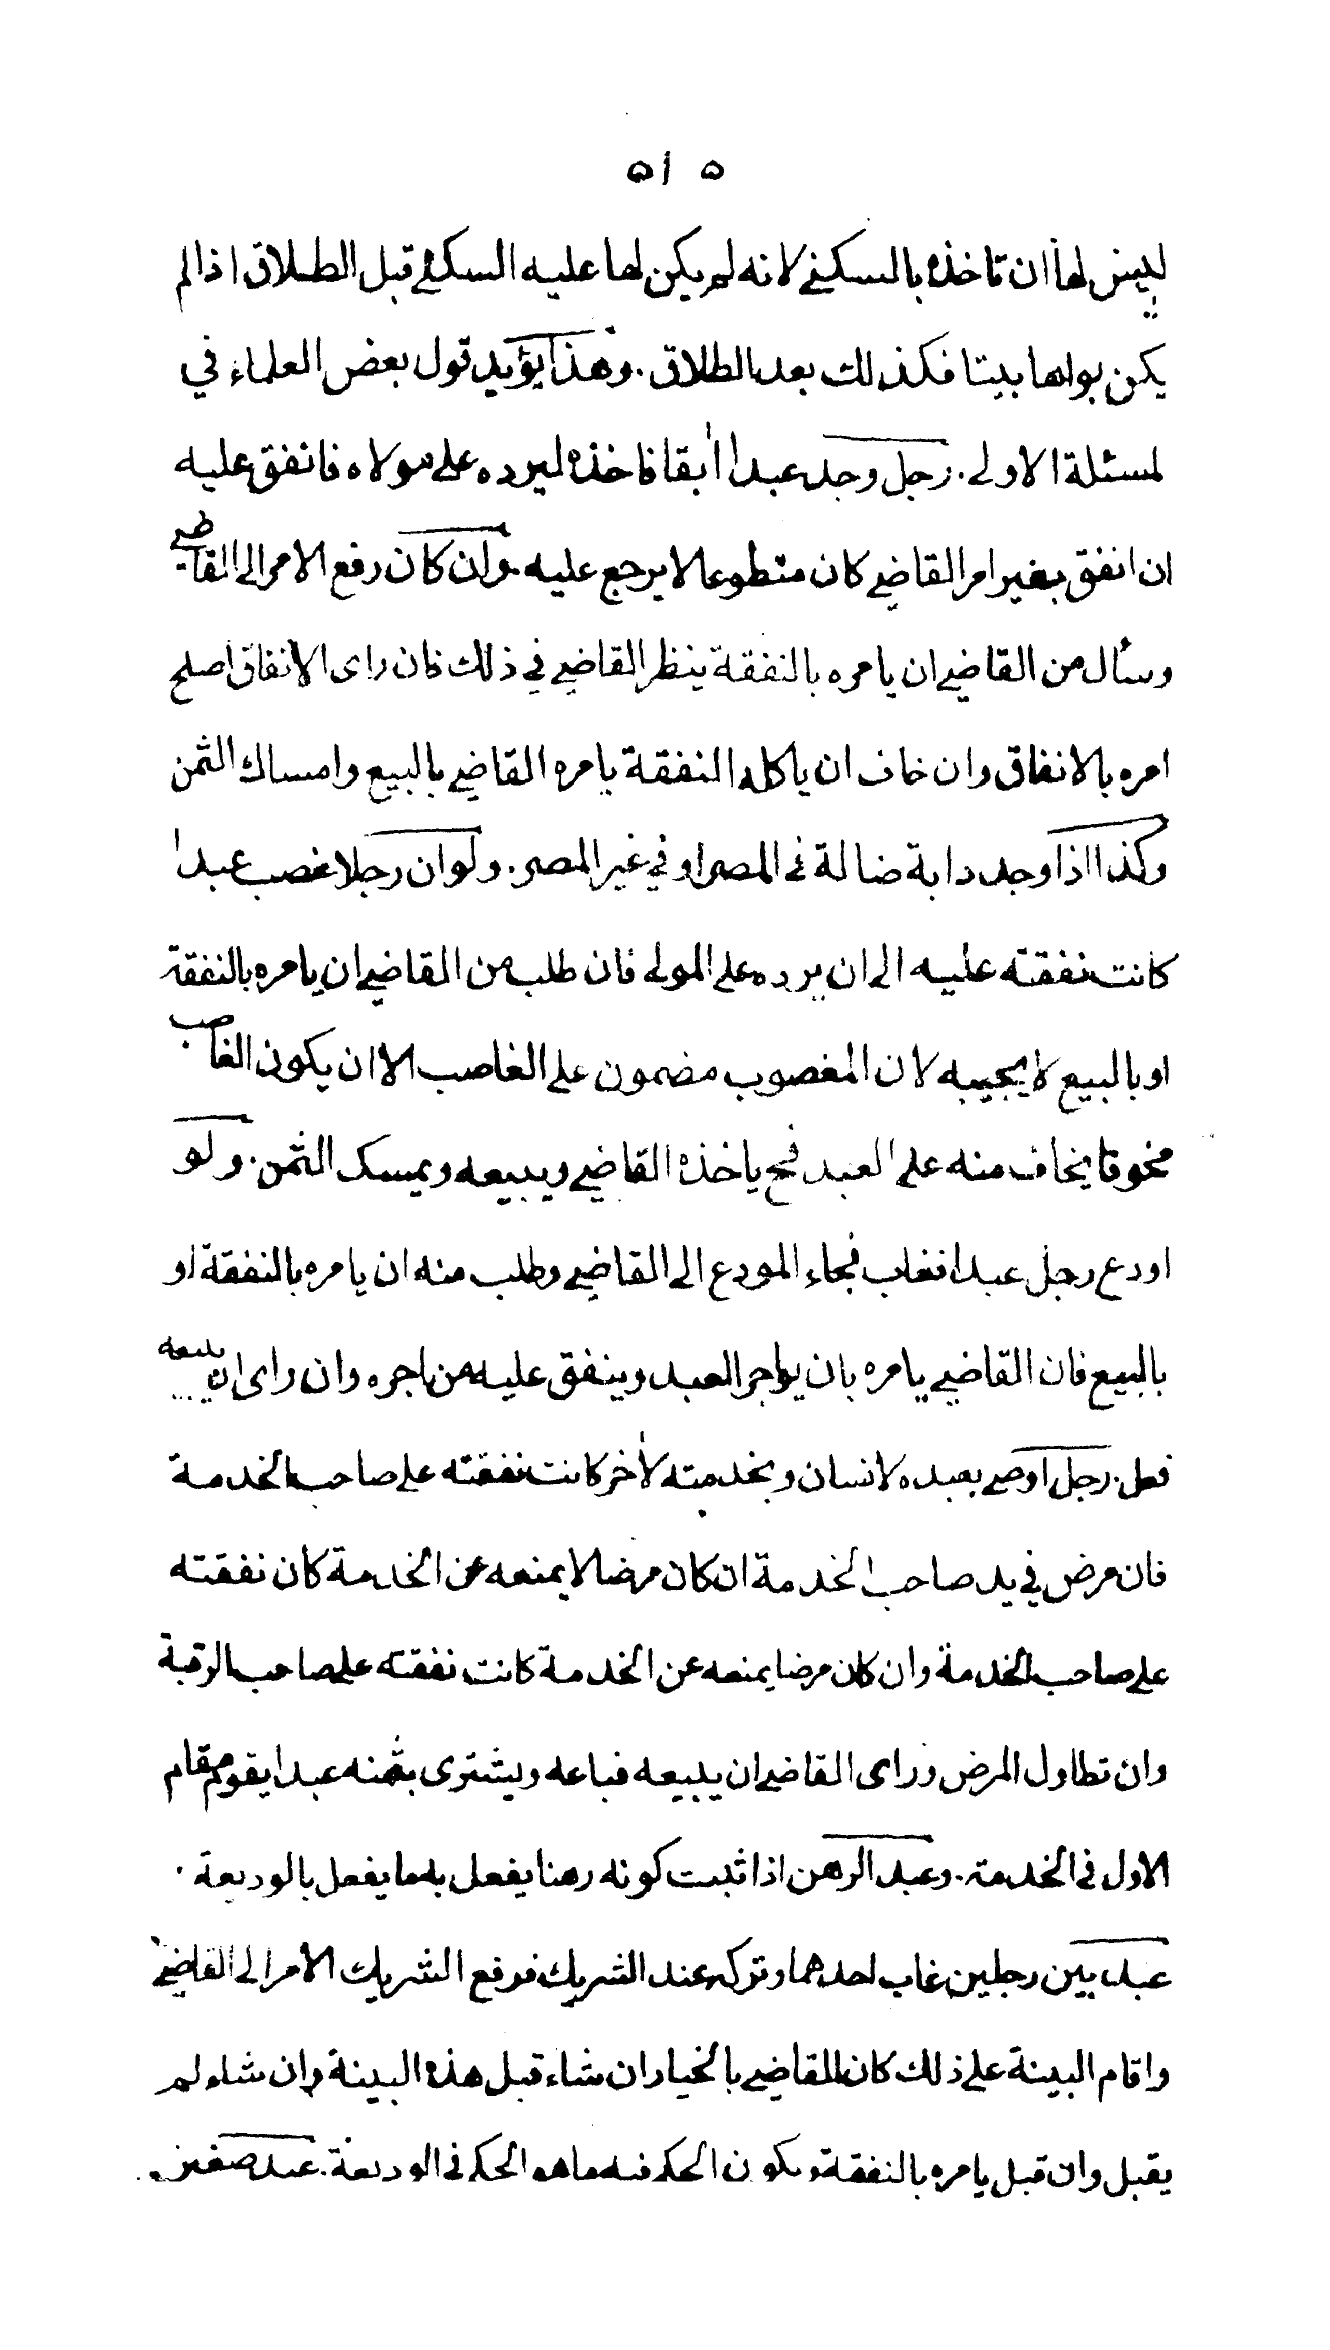 ٥١٥
ليس لها ان تاخذه بالسكنى لانه لم يكن لها عليه السكنى قبل الطلاق اذا لم
يكن بوأها بيتا فكذلك بعد الطلاق. وهذا يؤيد قول بعض العلماء في
لمسئلة الاولى. رجل وجد عبدا اٰبقا فاخذه ليرده على مولاه فانفق عليه
ان انفق بغير امر القاضي كان متطوعا لا يرجع عليه. وان كان رفع الامر الى القاضي
وسأل من القاضي ان يامره بالنفقة ينظر القاضي في ذلك فان راى الانفاق اصلح
امره بالانفاق وان خاف ان ياكله النفقة يامره القاضي بالبيع وامساك الثمن
وكذا اذا وجد دابة ضالة في المصر او في غير المصر. ولو ان رجلا غصب عبدا
كانت نفقته عليه الى ان يرده على المولى فان طلب من القاضي ان يامره بالنفقة
او بالبيع لا يجيبه لان المغصوب مضمون على الغاصب الا ان يكون الغاصب
مخوفا يخاف منه على العبد فح ياخذه القاضي ويبيعه ويمسك الثمن. ولو
اودع رجل عبدا فغاب فجاء المودع الى القاضي وطلب منه ان يامره بالنفقة او
بالبيع فان القاضي يامره بان يواجر العبد وينفق عليه من اجره وان راى ان يبيعه
فعل. رجل اوصى بعبده لانسان وبخدمته لاٰخر كانت نفقته على صاحب الخدمة
فان مرض في يد صاحب الخدمة ان كان مرضا لا يمنعه عن الخدمة كان نفقته
على صاحب الخدمة وان كان مرضا يمنعه عن الخدمة كانت نفقته على صاحب الرقبة
وان تطاول المرض وراى القاضي ان يبيعه فباعه ويشترى بثمنه عبدا يقوم مقام
الاول في الخدمة. وعبد الرهن اذا ثبت كونه رهنا يفعل به ما يفعل بالوديعة.
عبد بين رجلين غاب احدهما وتركه عند الشريك فرفع الشريك الامر الى القاضي
واقام البينة على ذلك كان للقاضي بالخيار ان شاء قبل هذه البينة وان شاء لم
يقبل وان قبل يامره بالنفقة ويكون الحكم فيه ما هو الحكم في الوديعة. عبد صغير